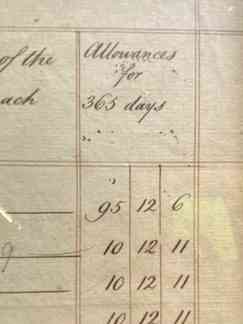 of the
ach
Allowances
for
365 days
95 12 6
9 10 12 11
10 12 11
10 12 11